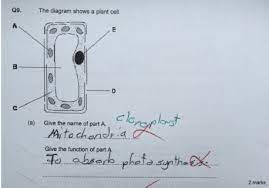 Q9. The diagram shows a plant cell.
A
E
B
D
C
(a) Give the name of part A.
chloroplast
Mitochondria
Give the function of part A.
To absorb photosynthesis.
2 marks